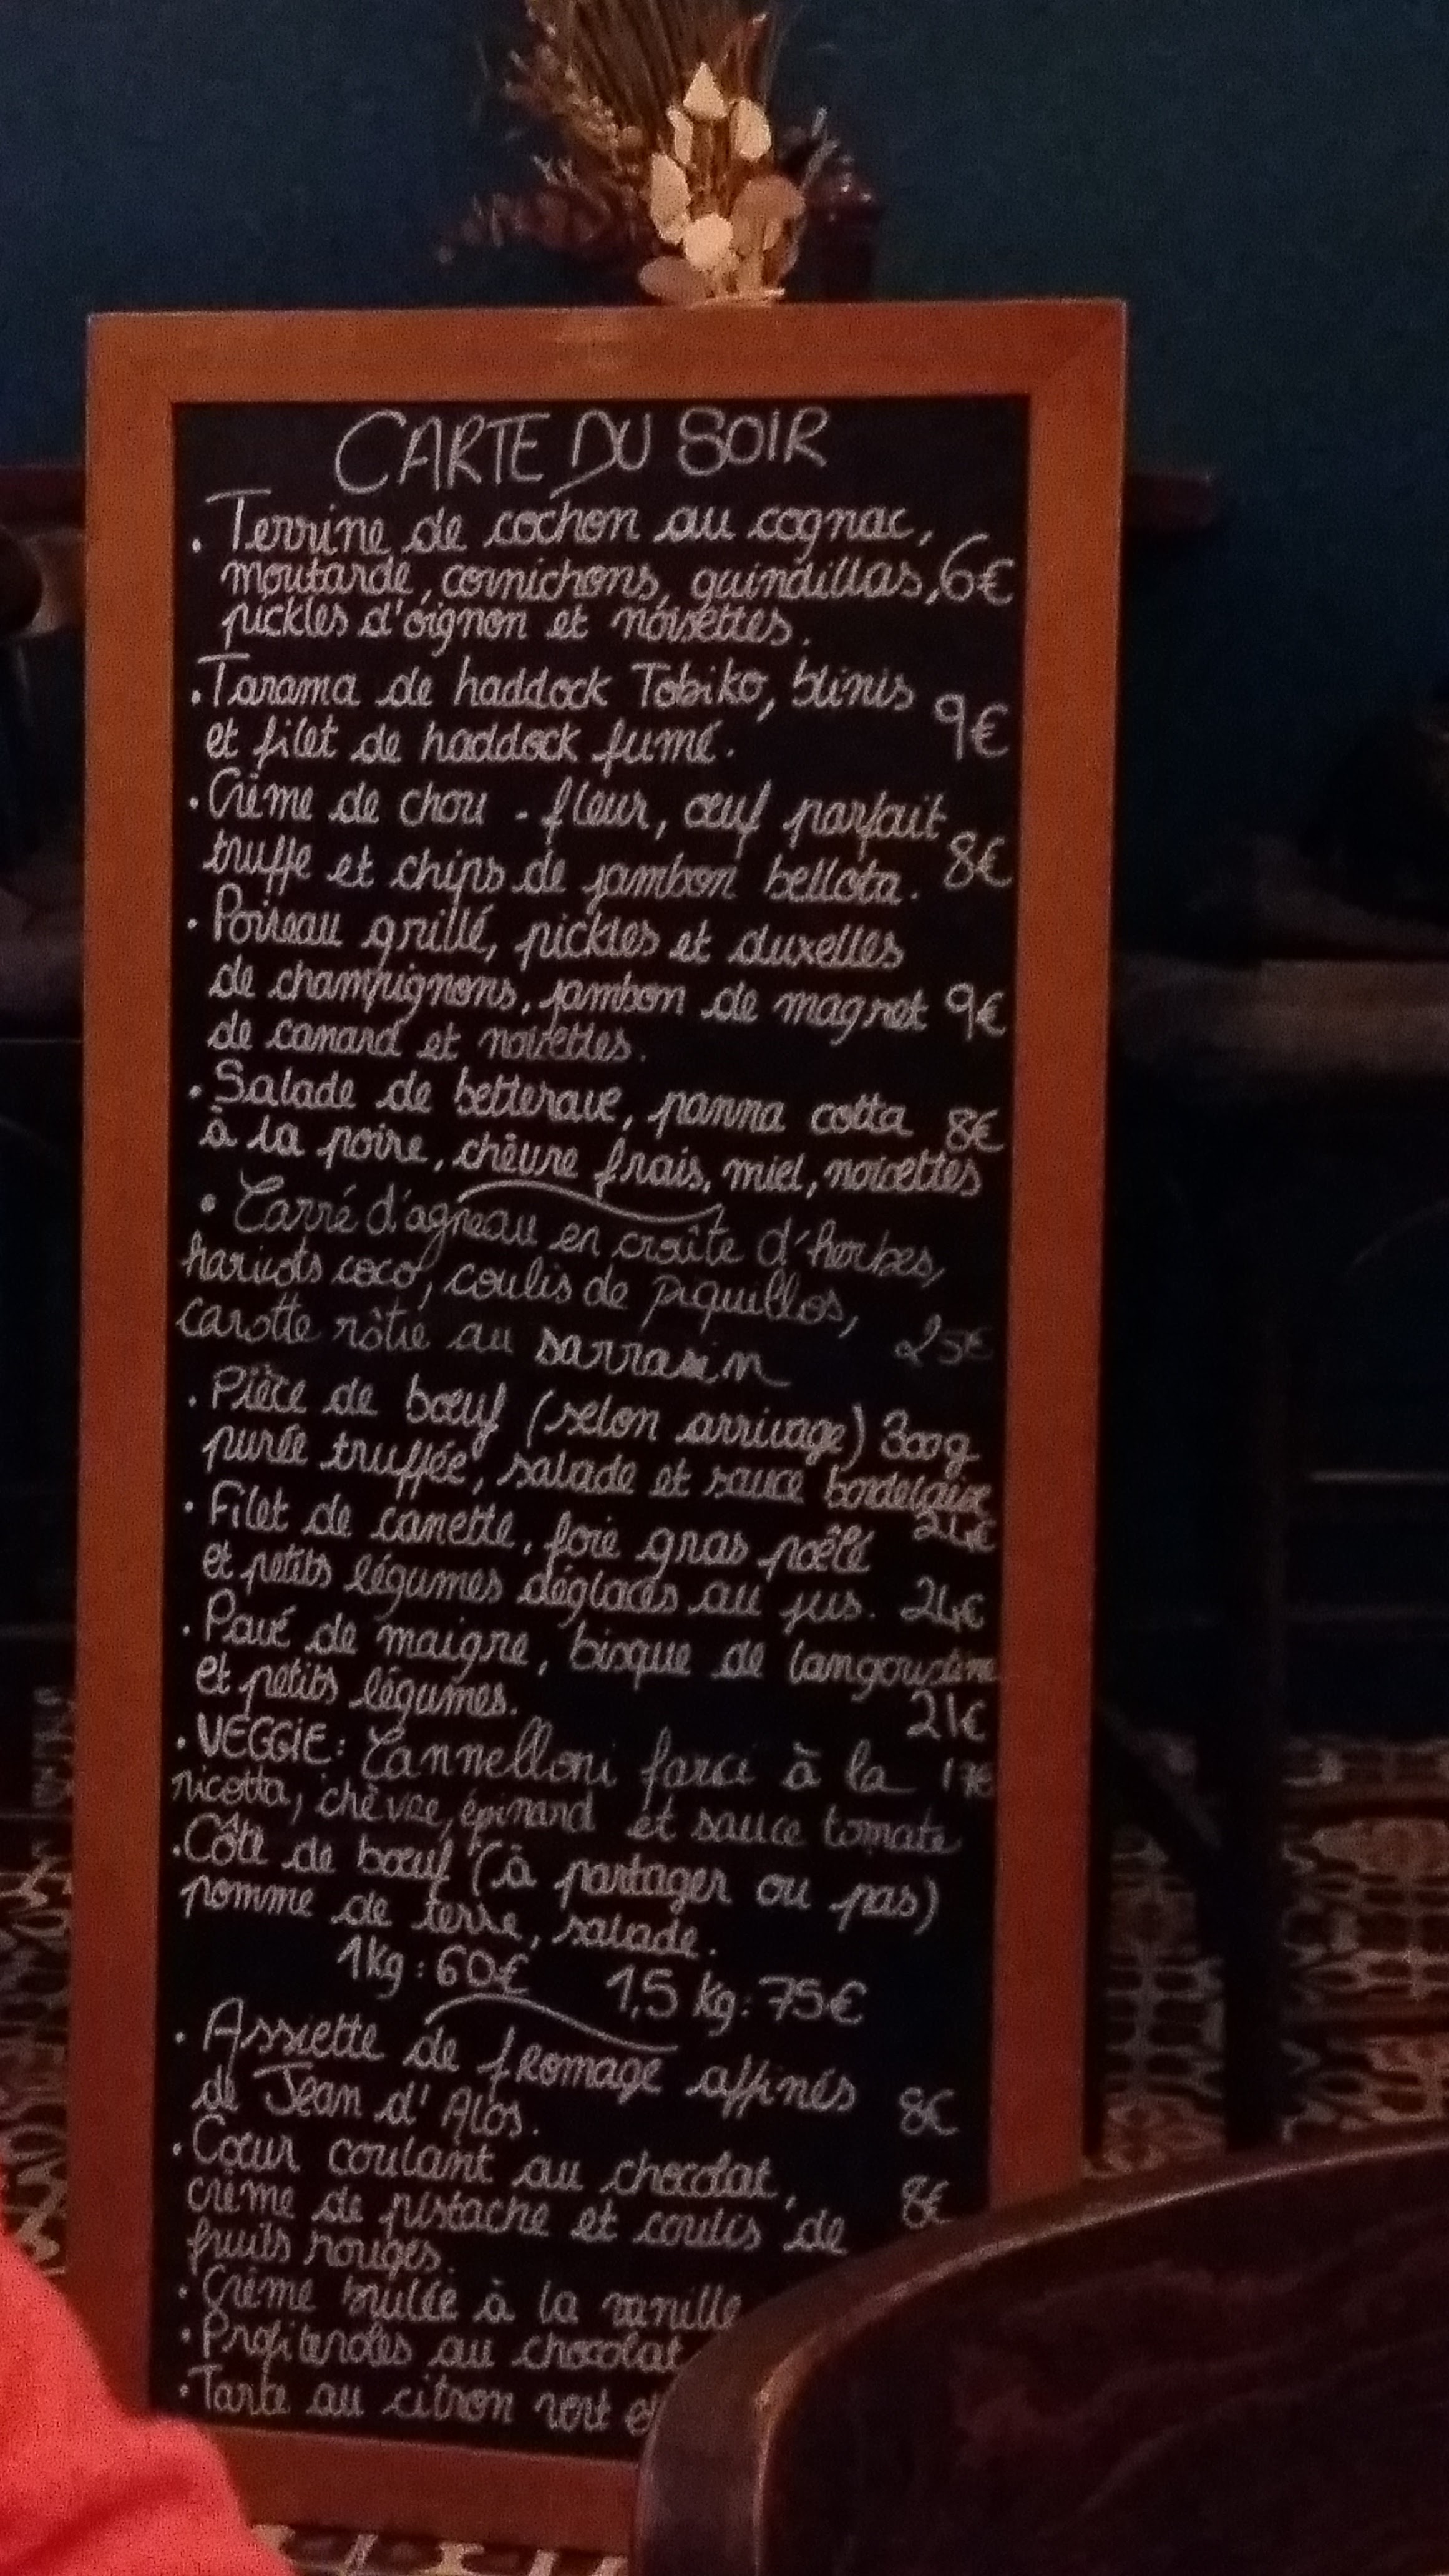 CARTE DU SOIR
. Terrine de cochon au cognac,
moutarde, cornichons, guindillas, 6€
pickles d'oignon et noisettes.
. Tarama de haddock Tobiko, blinis
et filet de haddock fumé. 9€
. Crème de chou - fleur, œuf parfait
truffe et chips de jambon bellota. 8€
. Poireau grillé, pickles et duxelles
de champignons, jambon de magret 9€
de canard et noisettes.
. Salade de betterave, panna cotta 8€
à la poire, chèvre frais, miel, noisettes
• Carré d'agneau en croûte d'herbes,
haricots coco, coulis de Piquillos,
carotte rôtie au sarrasin 25€
. Pièce de bœuf (selon arrivage) 300g
purée truffée, salade et sauce bordelaise
. Filet de canette, foie gras poêlé
et petits légumes déglacés au jus. 24€
. Pavé de maigre, bisque de langoustine
et petits légumes. 21€
. VEGGIE: Cannelloni farci à la 17€
ricotta, chèvre, épinard et sauce tomate
. Côte de bœuf (à partager ou pas)
pomme de terre, salade.
1kg : 60€ 1,5 kg : 75€
. Assiette de fromage affinés
de Jean d'Alos. 8€
. Cœur coulant au chocolat,
crème de pistache et coulis de 8€
fruits rouges.
. Crème brûlée à la vanille
. Profiteroles au chocolat
. Tarte au citron vert e